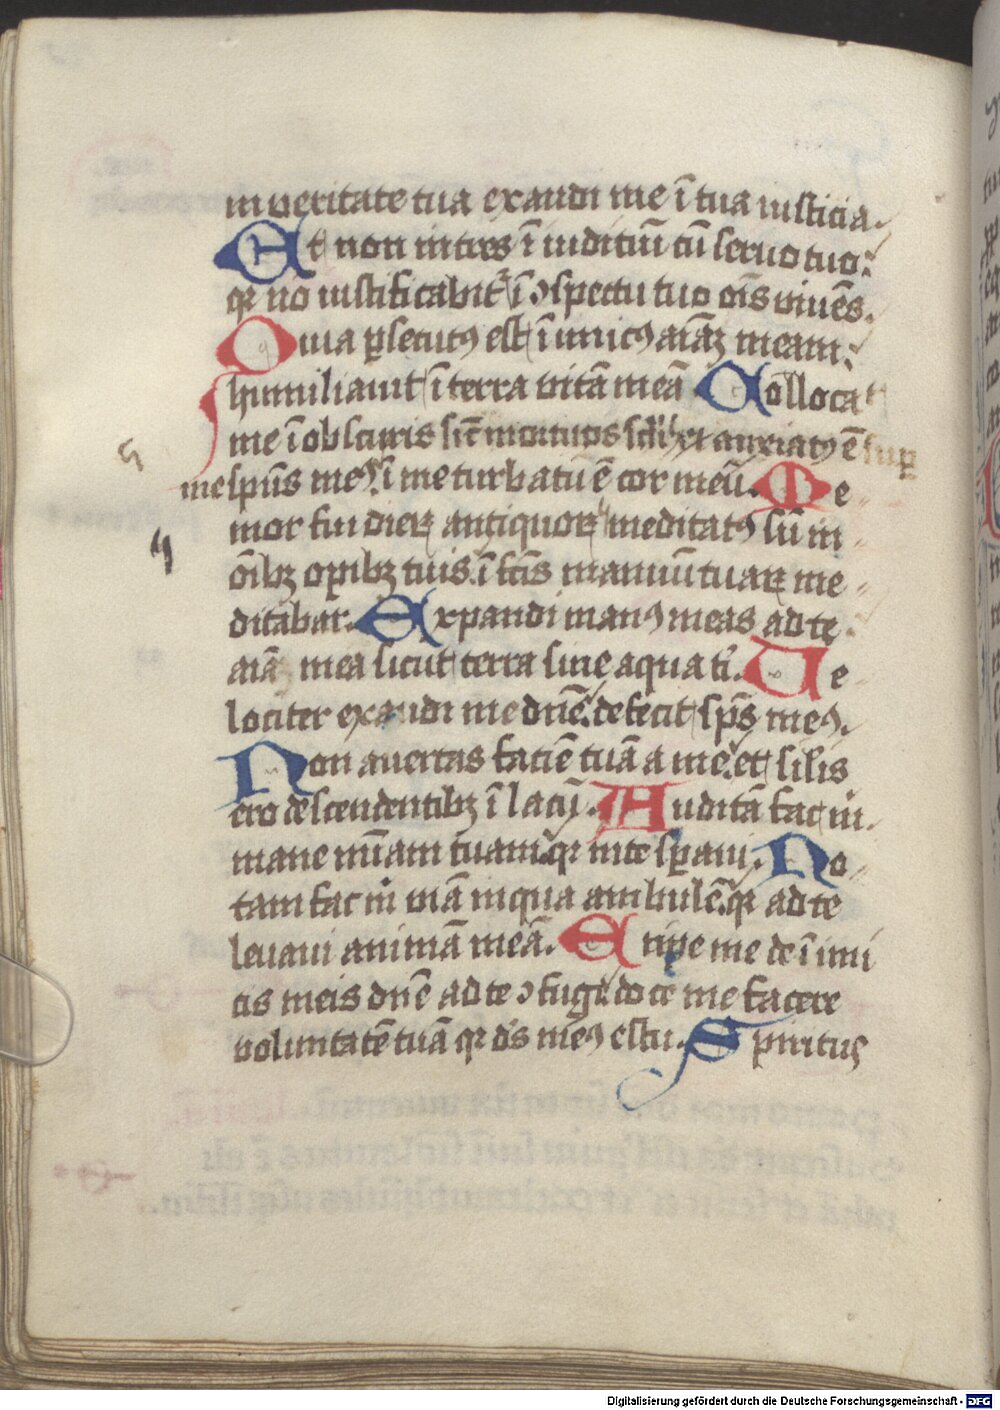 in veritate tua exaudi me ī tua iusticia.
Et non intres ī iuditiū cū servo tuo:
qr nō iustificabit᷑ ī ↄspectu tuo oīs vivēs.
Quia ꝑsecutꝰ est īimicꝰ aīaꝫ meam:
humiliavit ī terra vitā meā Collocat
me ī obscuris sic̄ mortuos scl̄i et anxiatꝰ ē suꝑ
me spūs meꝰ ī me turbatū ē cor meū. Me
mor fui dieꝝ antiquoꝝ meditatꝰ sū in
oībꝫ oꝑibꝫ tuis. ī fc̄is manuū tuaꝝ me
ditabar. Expandi manꝰ meas ad te
aīa mea sicut terra sine aqua t'. Ve
lociter exaudi me dn̄e. defecit sp̄s meꝰ.
Non avertas faciē tuā a me. et silis
ero descendentibꝫ ī lacū. Auditā fac m̄.
mane mīam tuam. qr in te sꝑavi. No
tam fac m̄ viā in qua ambulē. qr ad te
levavi animā meā. Eripe me de īimi
cis meis dn̄e ad te ↄfugi. doce me facere
voluntatē tuā qr ds̄ meꝰ es tu. Spiritus
Digitalisierung gefördert durch die Deutsche Forschungsgemeinschaft - DFG